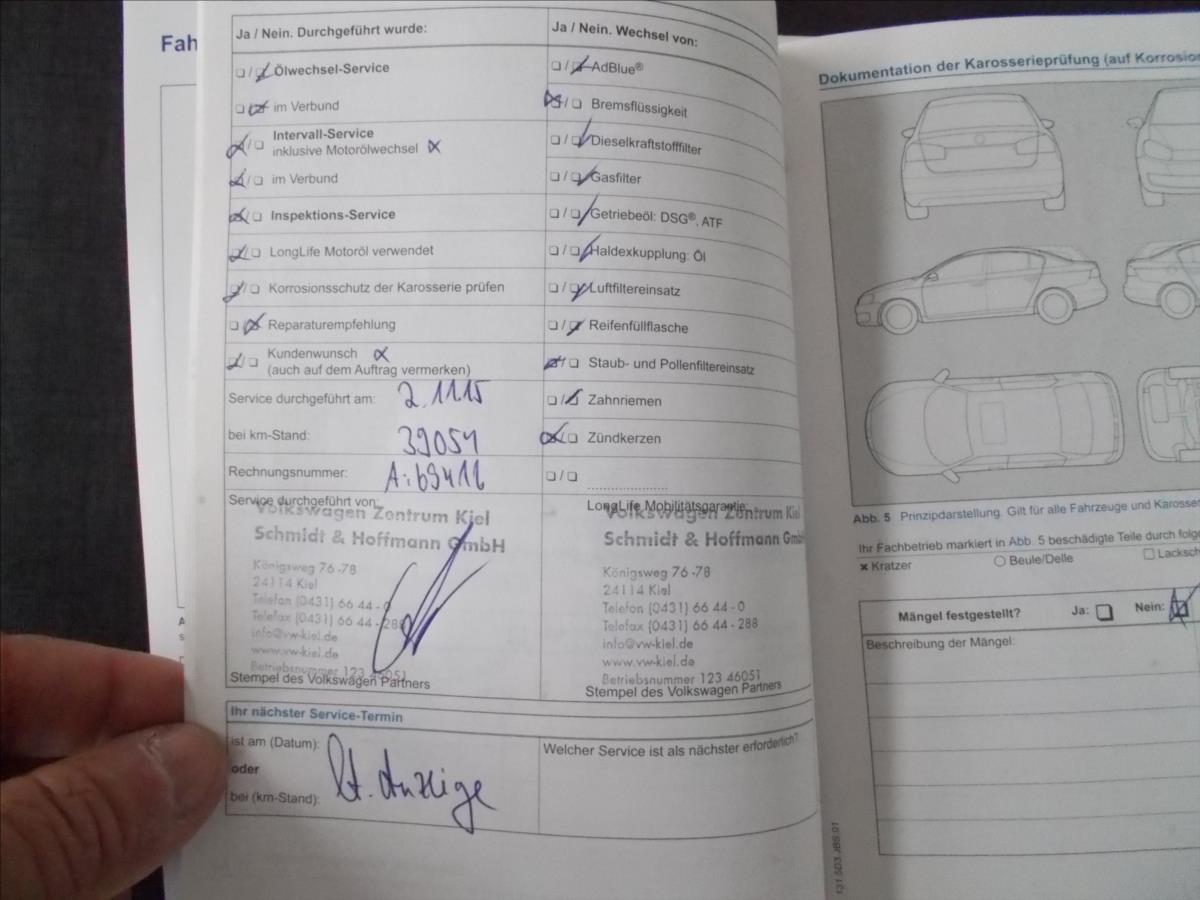 Fah
Ja / Nein. Durchgeführt wurde:
Ölwechsel-Service
im Verbund
Intervall-Service
inklusive Motorölwechsel
im Verbund
Inspektions-Service
LongLife Motoröl verwendet
Korrosionsschutz der Karosserie prüfen
Reparaturempfehlung
Kundenwunsch
(auch auf dem Auftrag vermerken)
Service durchgeführt am: 2.11.15
bei km-Stand: 39051
Rechnungsnummer:
Service durchgeführt von:
Volkswagen Zentrum Kiel
Schmidt & Hoffmann GmbH
Königsweg 76-78
24114 Kiel
Telefon (0431) 66 44-0
Telefax (0431) 66 44-288
info@vw-kiel.de
www.vw-kiel.de
Betriebsnummer 123 46051
Stempel des Volkswagen Partners
Ja / Nein. Wechsel von:
AdBlue®
Bremsflüssigkeit
Dieselkraftstofffilter
Gasfilter
Getriebeöl: DSG®, ATF
Haldexkupplung: Öl
Luftfiltereinsatz
Reifenfüllflasche
Staub- und Pollenfiltereinsatz
Zahnriemen
Zündkerzen
LongLife Mobilitätsgarantie:
Volkswagen Zentrum Kiel
Schmidt & Hoffmann GmbH
Königsweg 76-78
24114 Kiel
Telefon (0431) 66 44-0
Telefax (0431) 66 44-288
info@vw-kiel.de
www.vw-kiel.de
Betriebsnummer 123 46051
Stempel des Volkswagen Partners
Ihr nächster Service-Termin
ist am (Datum):
oder
bei (km-Stand):
lt. Anzeige
Welcher Service ist als nächster erforderlich?
Dokumentation der Karosserieprüfung (auf Korrosion
Abb. 5 Prinzipdarstellung. Gilt für alle Fahrzeuge und Karosse
Ihr Fachbetrieb markiert in Abb. 5 beschädigte Teile durch folge
Kratzer Beule/Delle Lacksch
Mängel festgestellt? Ja: Nein:
Beschreibung der Mängel:
131.5D3.JBS.01